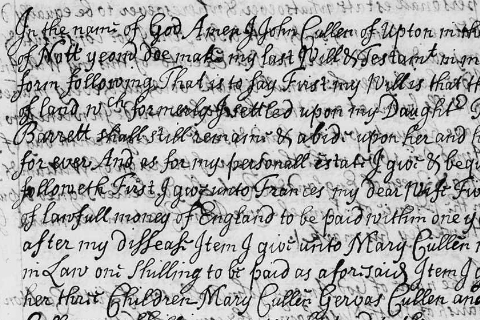 In the name of God Amen I John Cullen of Upton in the
of Nott yeond doe make my last Will & Testamt in m
form following That is to say First my Will is that th
of land wch formerly I settled upon my Daught
Barrett shall still remaine & abide upon her and
for ever And as for my personall estate I give & beq
followeth First I give unto Frances my dear Wife
of lawfull money of England to be paid within one y
after my dissease Item I give unto Mary Cullen
in Law one shilling to be paid as aforesaid Item I
her three Children Mary Cullen Gervas Cullen and